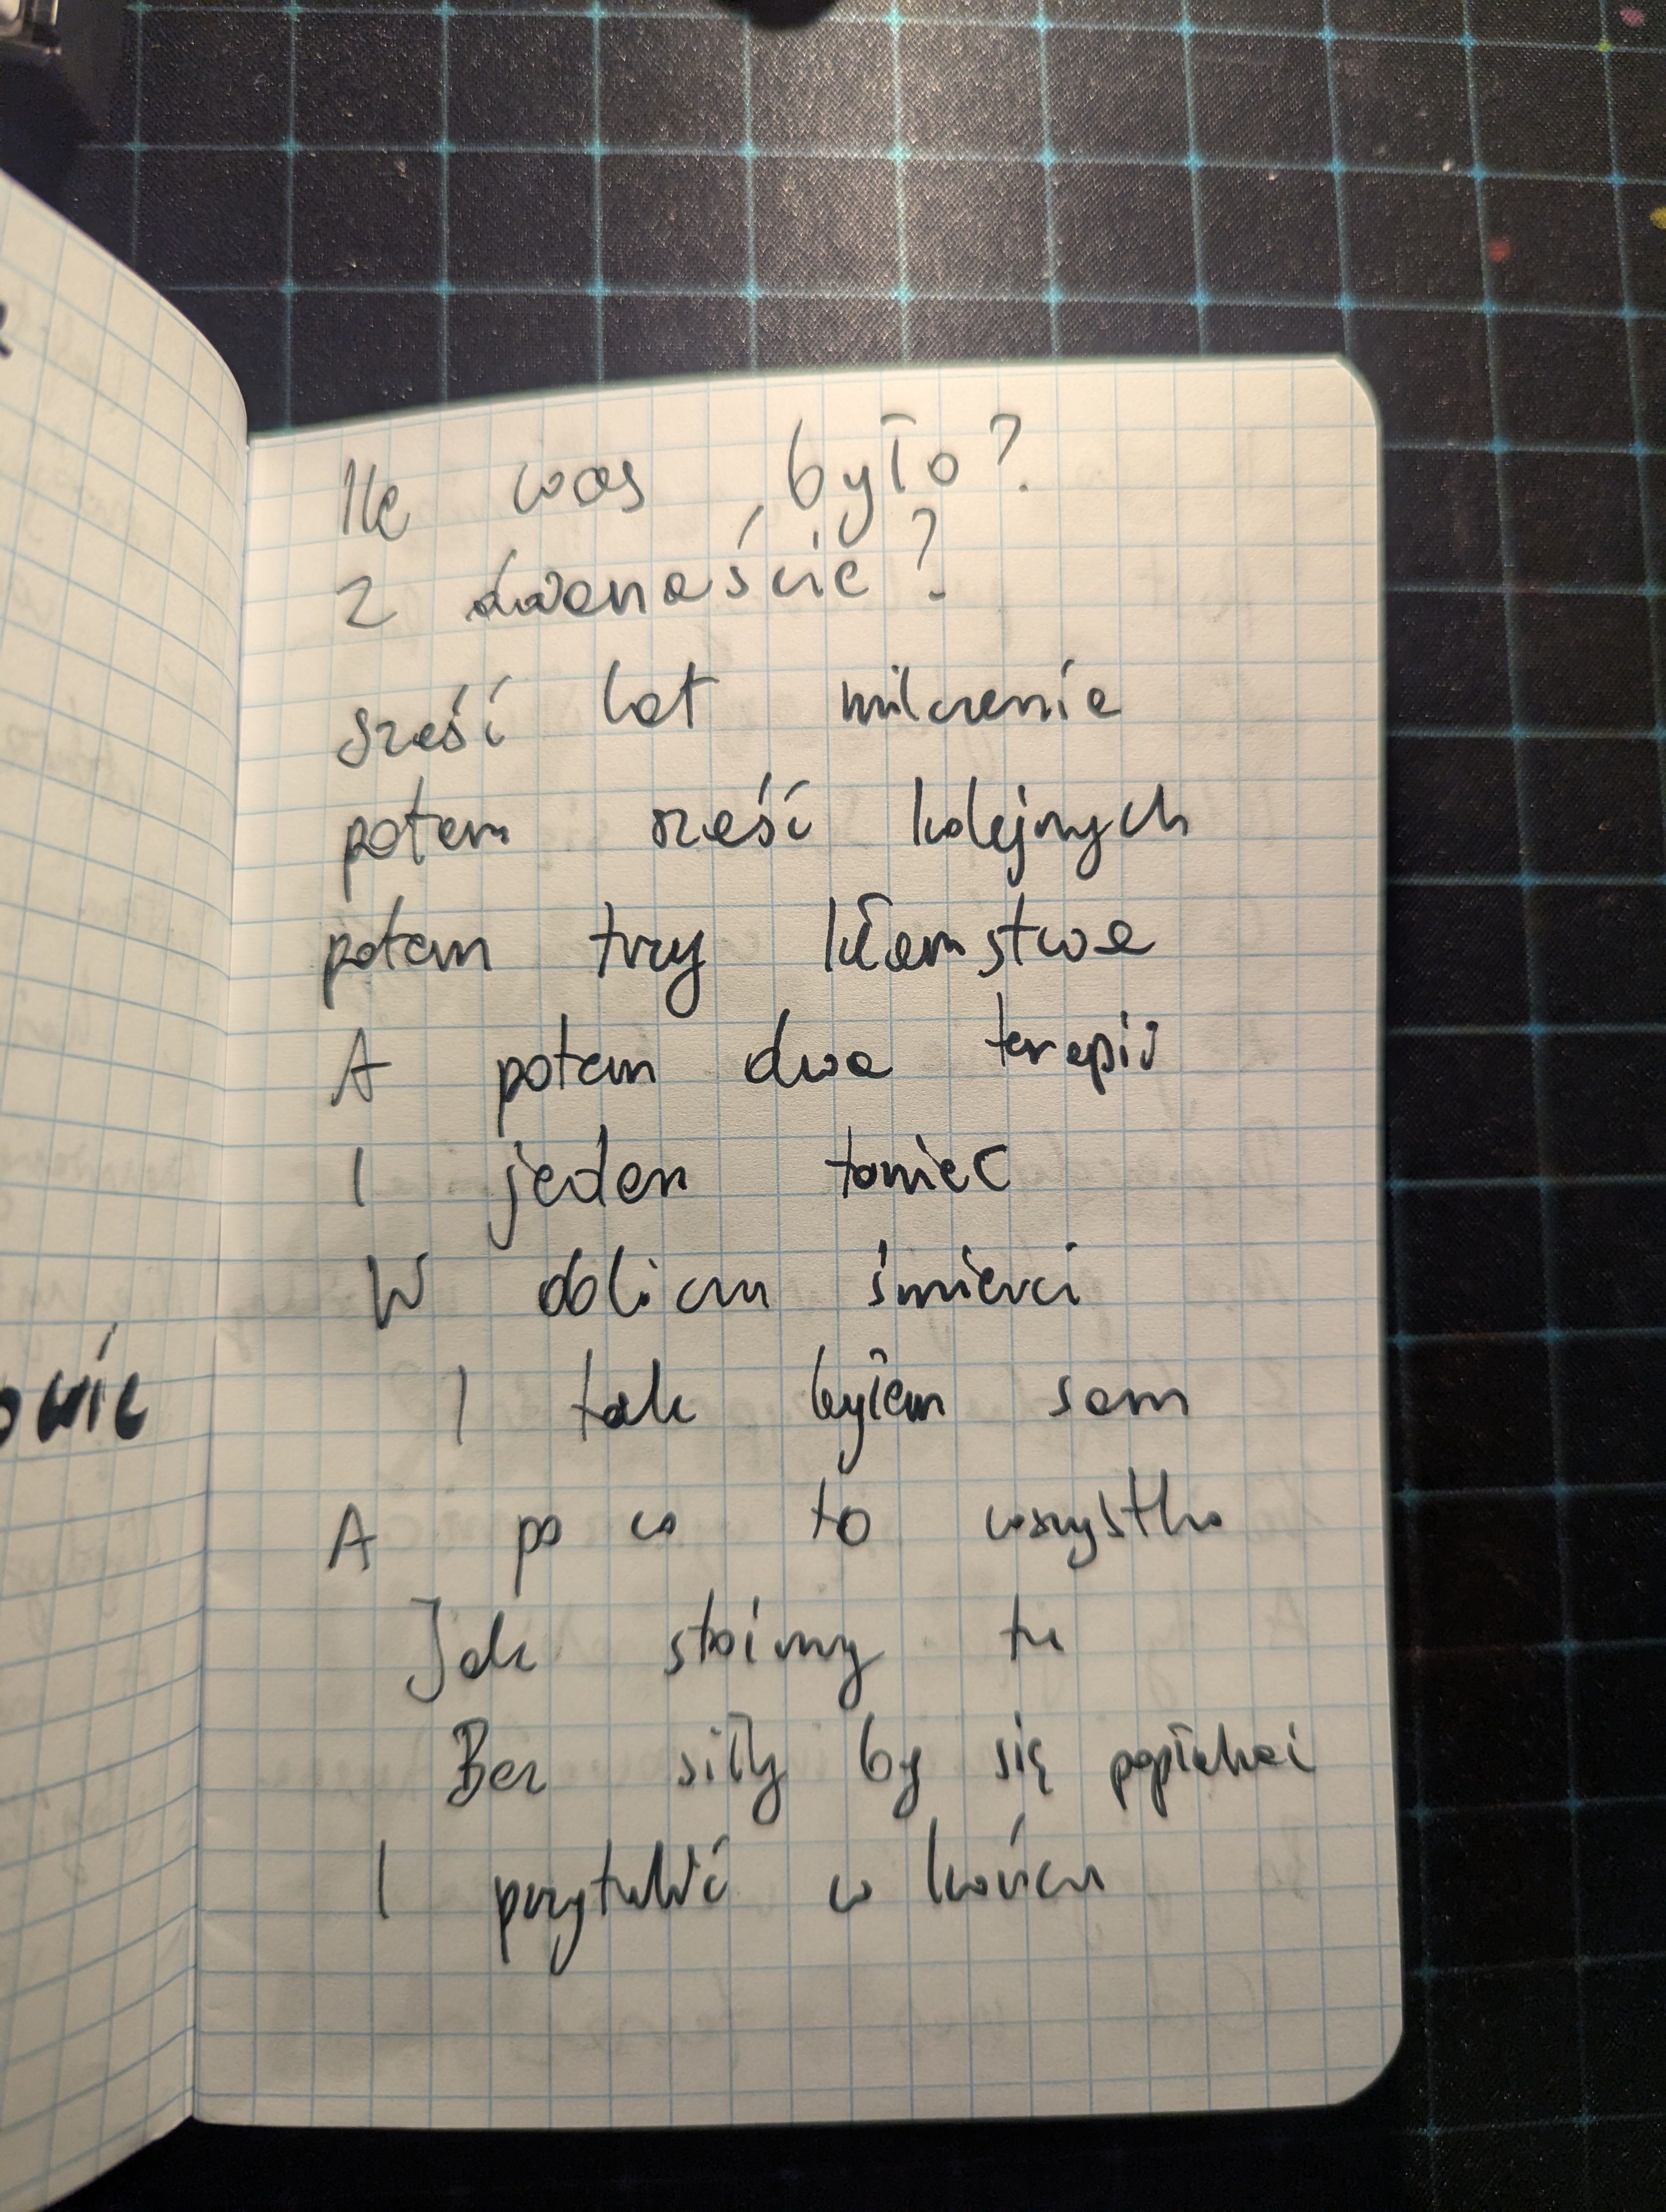 Ile was było?
Z dwanaście?
sześć lat milczenia
potem sześć kolejnych
potem trzy kłamstwa
A potem dwa terapii
I jeden taniec
W obliczu śmierci
I tak byłem sam
A po co to wszystko
Jak stoimy tu
Bez siły by się popłakać
I przytulić w końcu